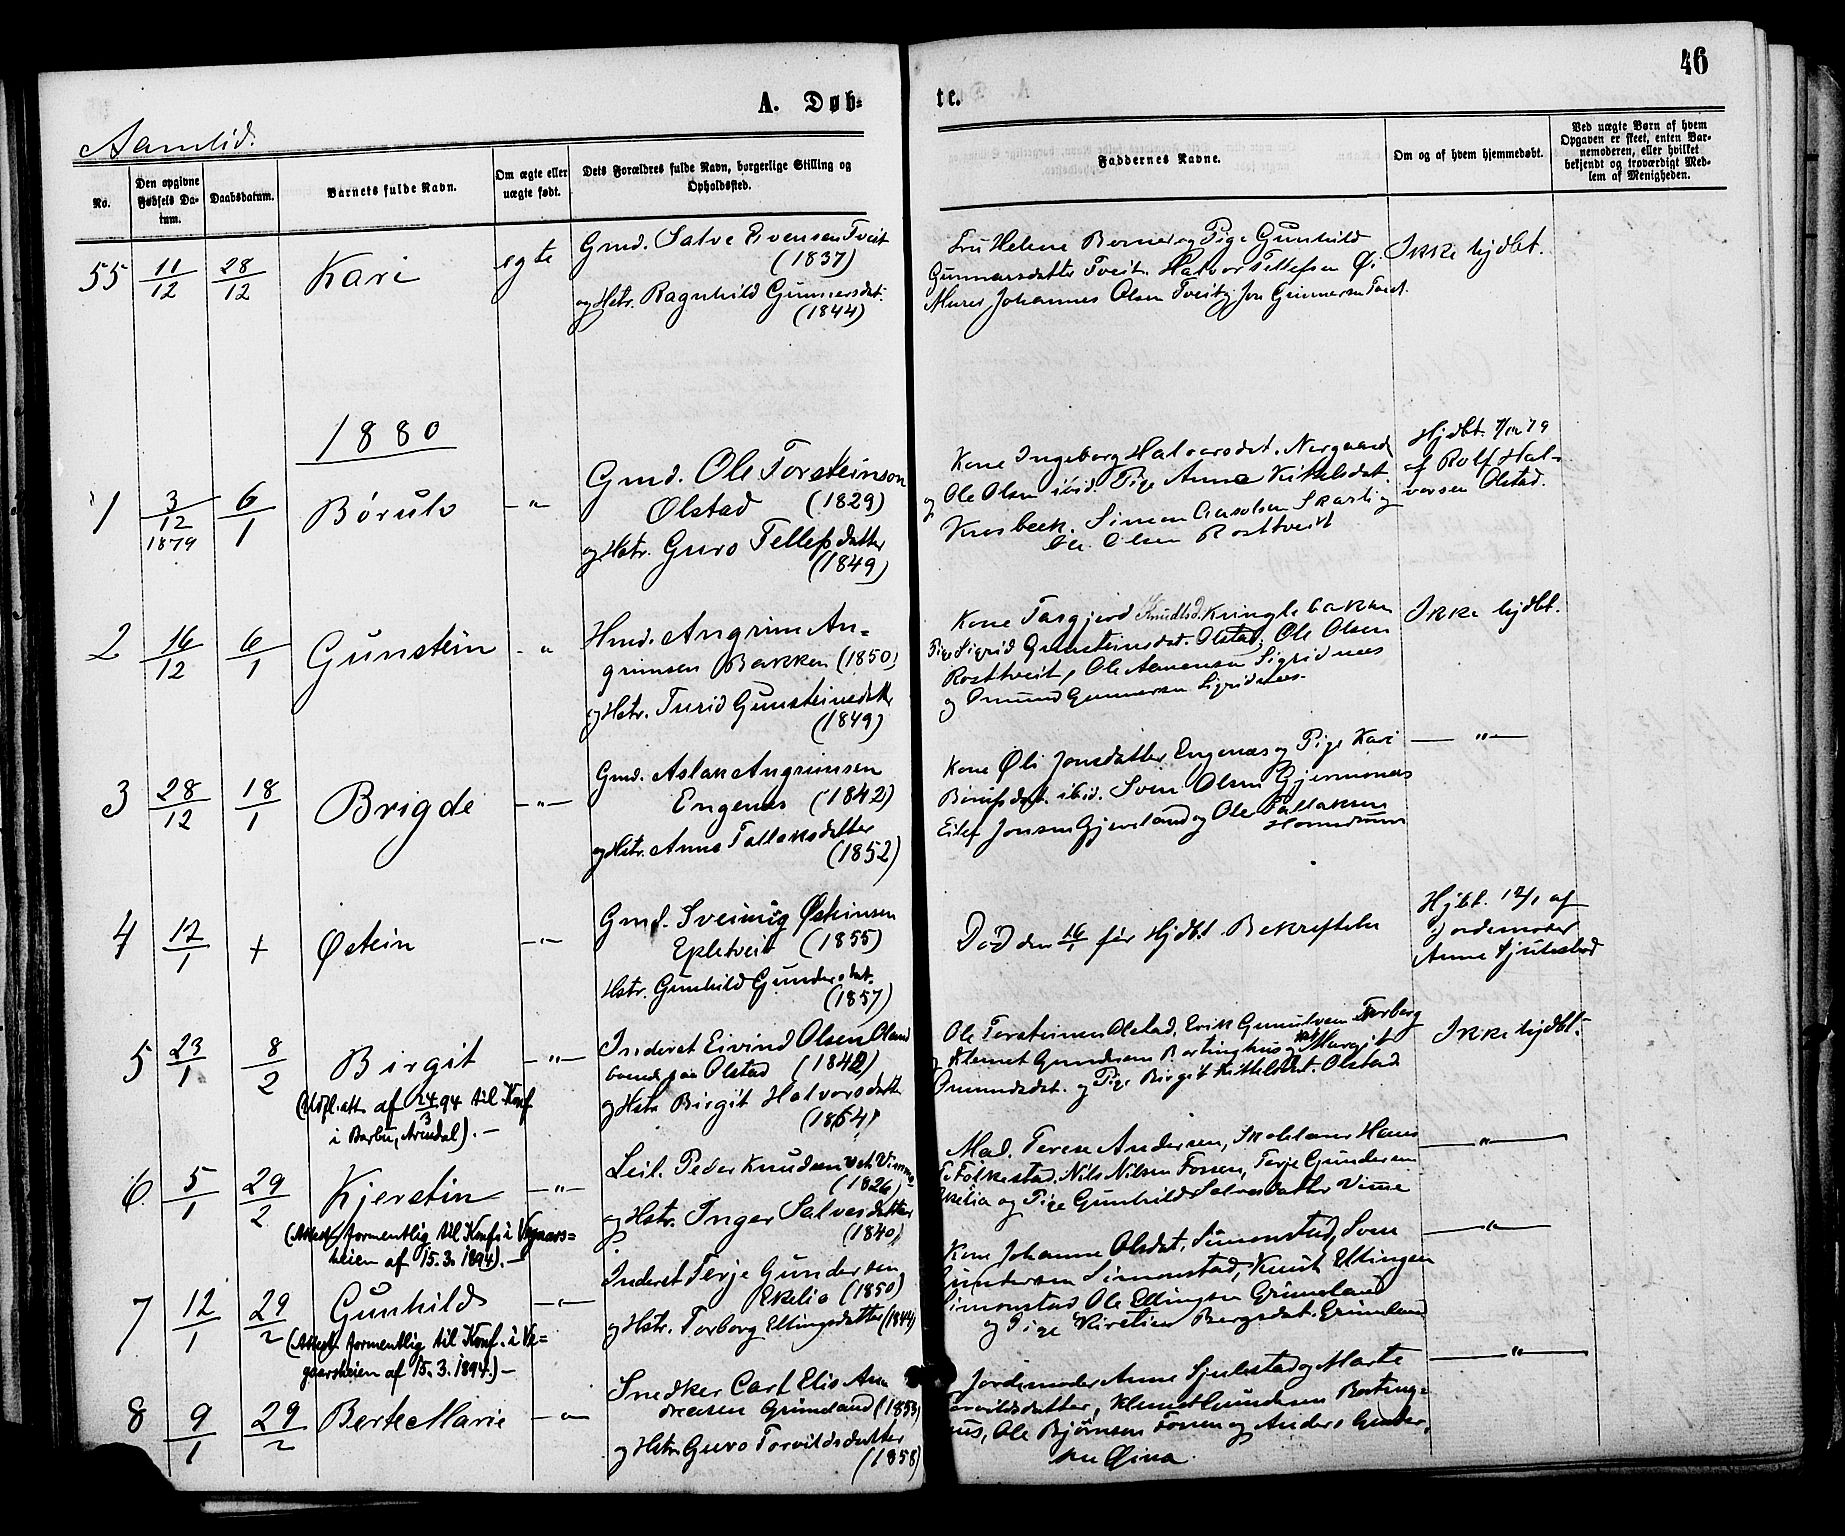 46
A. Døb-
te.
Aamlid.
No.
Den opgivne Fødsels Da-tum.
Daabsdatum.
Barnets fulde Navn.
Om ægte eller uægte født.
Dets Forældres fulde Navn, borgerlige Stilling og Opholdssted.
Faddernes Navne.
Om og af hvem hjemmedøbt.
Ved uægte Børn af hvem Opgaven er skeet, enten Bar-nemoderen, eller hvilket bekjendt og troværdigt Med-lem af Menigheden.
55 11/12 28/12 Kari egte
Gmd. Salve Evensen Tveit
(1837)
og Hstr. Ragnhild Gunnersdat.
(1844)
Fru Helene Berner og Pige Gunhild
Gunnarsdatter Tveit. Halvor Tellefsen Ø.
Mures Johannes Olsen Tveit, Jon Gunnersen Tveit.
Ikke hjdbt.
1880
1 3/12 1879 6/1 Børulv -"-
Gmd. Ole Torsteinson
Olstad (1829)
og Hstr. Guro Tellefsdatter
(1849)
Kone Ingeborg Halvorsdat. Nergaard
og Ole Olsen ibid. Pige Anne Kittelsdat.
Simon Aasolsen
Ole Olsen Rosttveit
Hjdbt. 7/12 79
af Rolf Hal-
vorsen Olstad.
2 16/12 6/1 Gunstein -"-
Hmd. Angrim An-
grimsen Bakken (1850)
og Hstr. Turid Gunsteinsdatt.
(1849)
Kone Targjerd Knudtsd. Kringlebakken
Pige Sigrid Gunsteinsdat. Olstad, Ole Olsen
Rosttveit, Ole Aamensen Sigridnæs
og Omund Gunnersen Sigridnæs.
Ikke hjdbt.
3 28/12 18/1 Brigde -"-
Gmd. Aslak Angrimsen
Engenes (1842)
og Hstr. Anne Tallaksdatter
(1852)
Kone Øli Jonsdatter Engenæs og Pige Kari
Børufsdat. ibid. Sven Olsen Gjermonæs
Eilef Jonsen Gjeveland og Ole Tallaksen
-"-
4 12/1 + Østein -"-
Gmd. Sveinug Østeinsen
Epletveit (1855)
Hstr. Gunhild Gundersdat.
(1857)
Død den 16/1 før Hjdbt. Bekræftelse
Hjbt. 12/1 af
Jordemoder
Anne Sjulestad
5 23/1 8/2 Birgit -"-
(Udfl.att. af 24/3 94 til Konf
i Barbu, Arendal). -
Inderst Eivind Olsen Oland
boende paa Olstad (1842)
og Hstr. Birgit Halvorsdatt.
(1864)
Ole Torsteinsen Olstad, Erik Gunulvsen
Klemet Gundersen Bortinghus og Margit
Omundsdat. og Pige Birgit Kittelsdat. Olstad
Ikke hjdbt.
6 5/1 29/2 Kjerstin -"-
(Attest formentlig til Konf. i Vegaars-
heien af 15.3.1894). -
Leil. Peder Knudsen
(1826)
og Hstr. Inger Salvesdatter
(1840)
Mad. Terese Andersen, Skolelærer Hans
T. Folkestad, Nils Nilsen Fossen, Terje Gundersen
Ekelia og Pige Gunhild Salvesdatter Vimme
-"-
7 12/1 29/2 Gunhild -"-
(Attest formentlig til Konf. i Ve-
gaarsheien af 15.3.1894.) -
Inderst Terje Gundersen
Ekelia (1850)
og Hstr. Torborg Ellingsdatter (1844)
Kone Johanne Olsdat. Simonstad, Sven
Gundersen Simonstad, Knut Ellingsen
Simonstad Ole Ellingsen Grimeland
og Pige Kirstine Bergsdat. Grimeland
-"-
8 9/1 29/2 Berte Marie -"-
Snedker Carl Elis An-
dreasen Grimeland (1853)
og Hstr. Guro Torvildsdatter
(1858)
Jordemoder Anne Sjulestad og Marte
Torvildsdatter, Klemet Gundersen Borting-
hus, Ole Bjørnsen Fossen og Anders Gunder-
sen Øina.
-"-